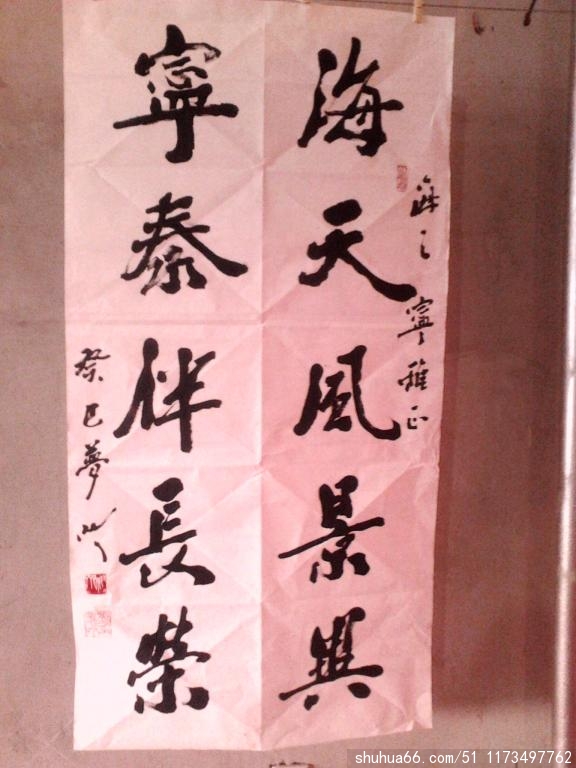 海天風景興
寧泰伴長榮
之寧雅正
癸巳夢
shuhua66.com/51 1173497762